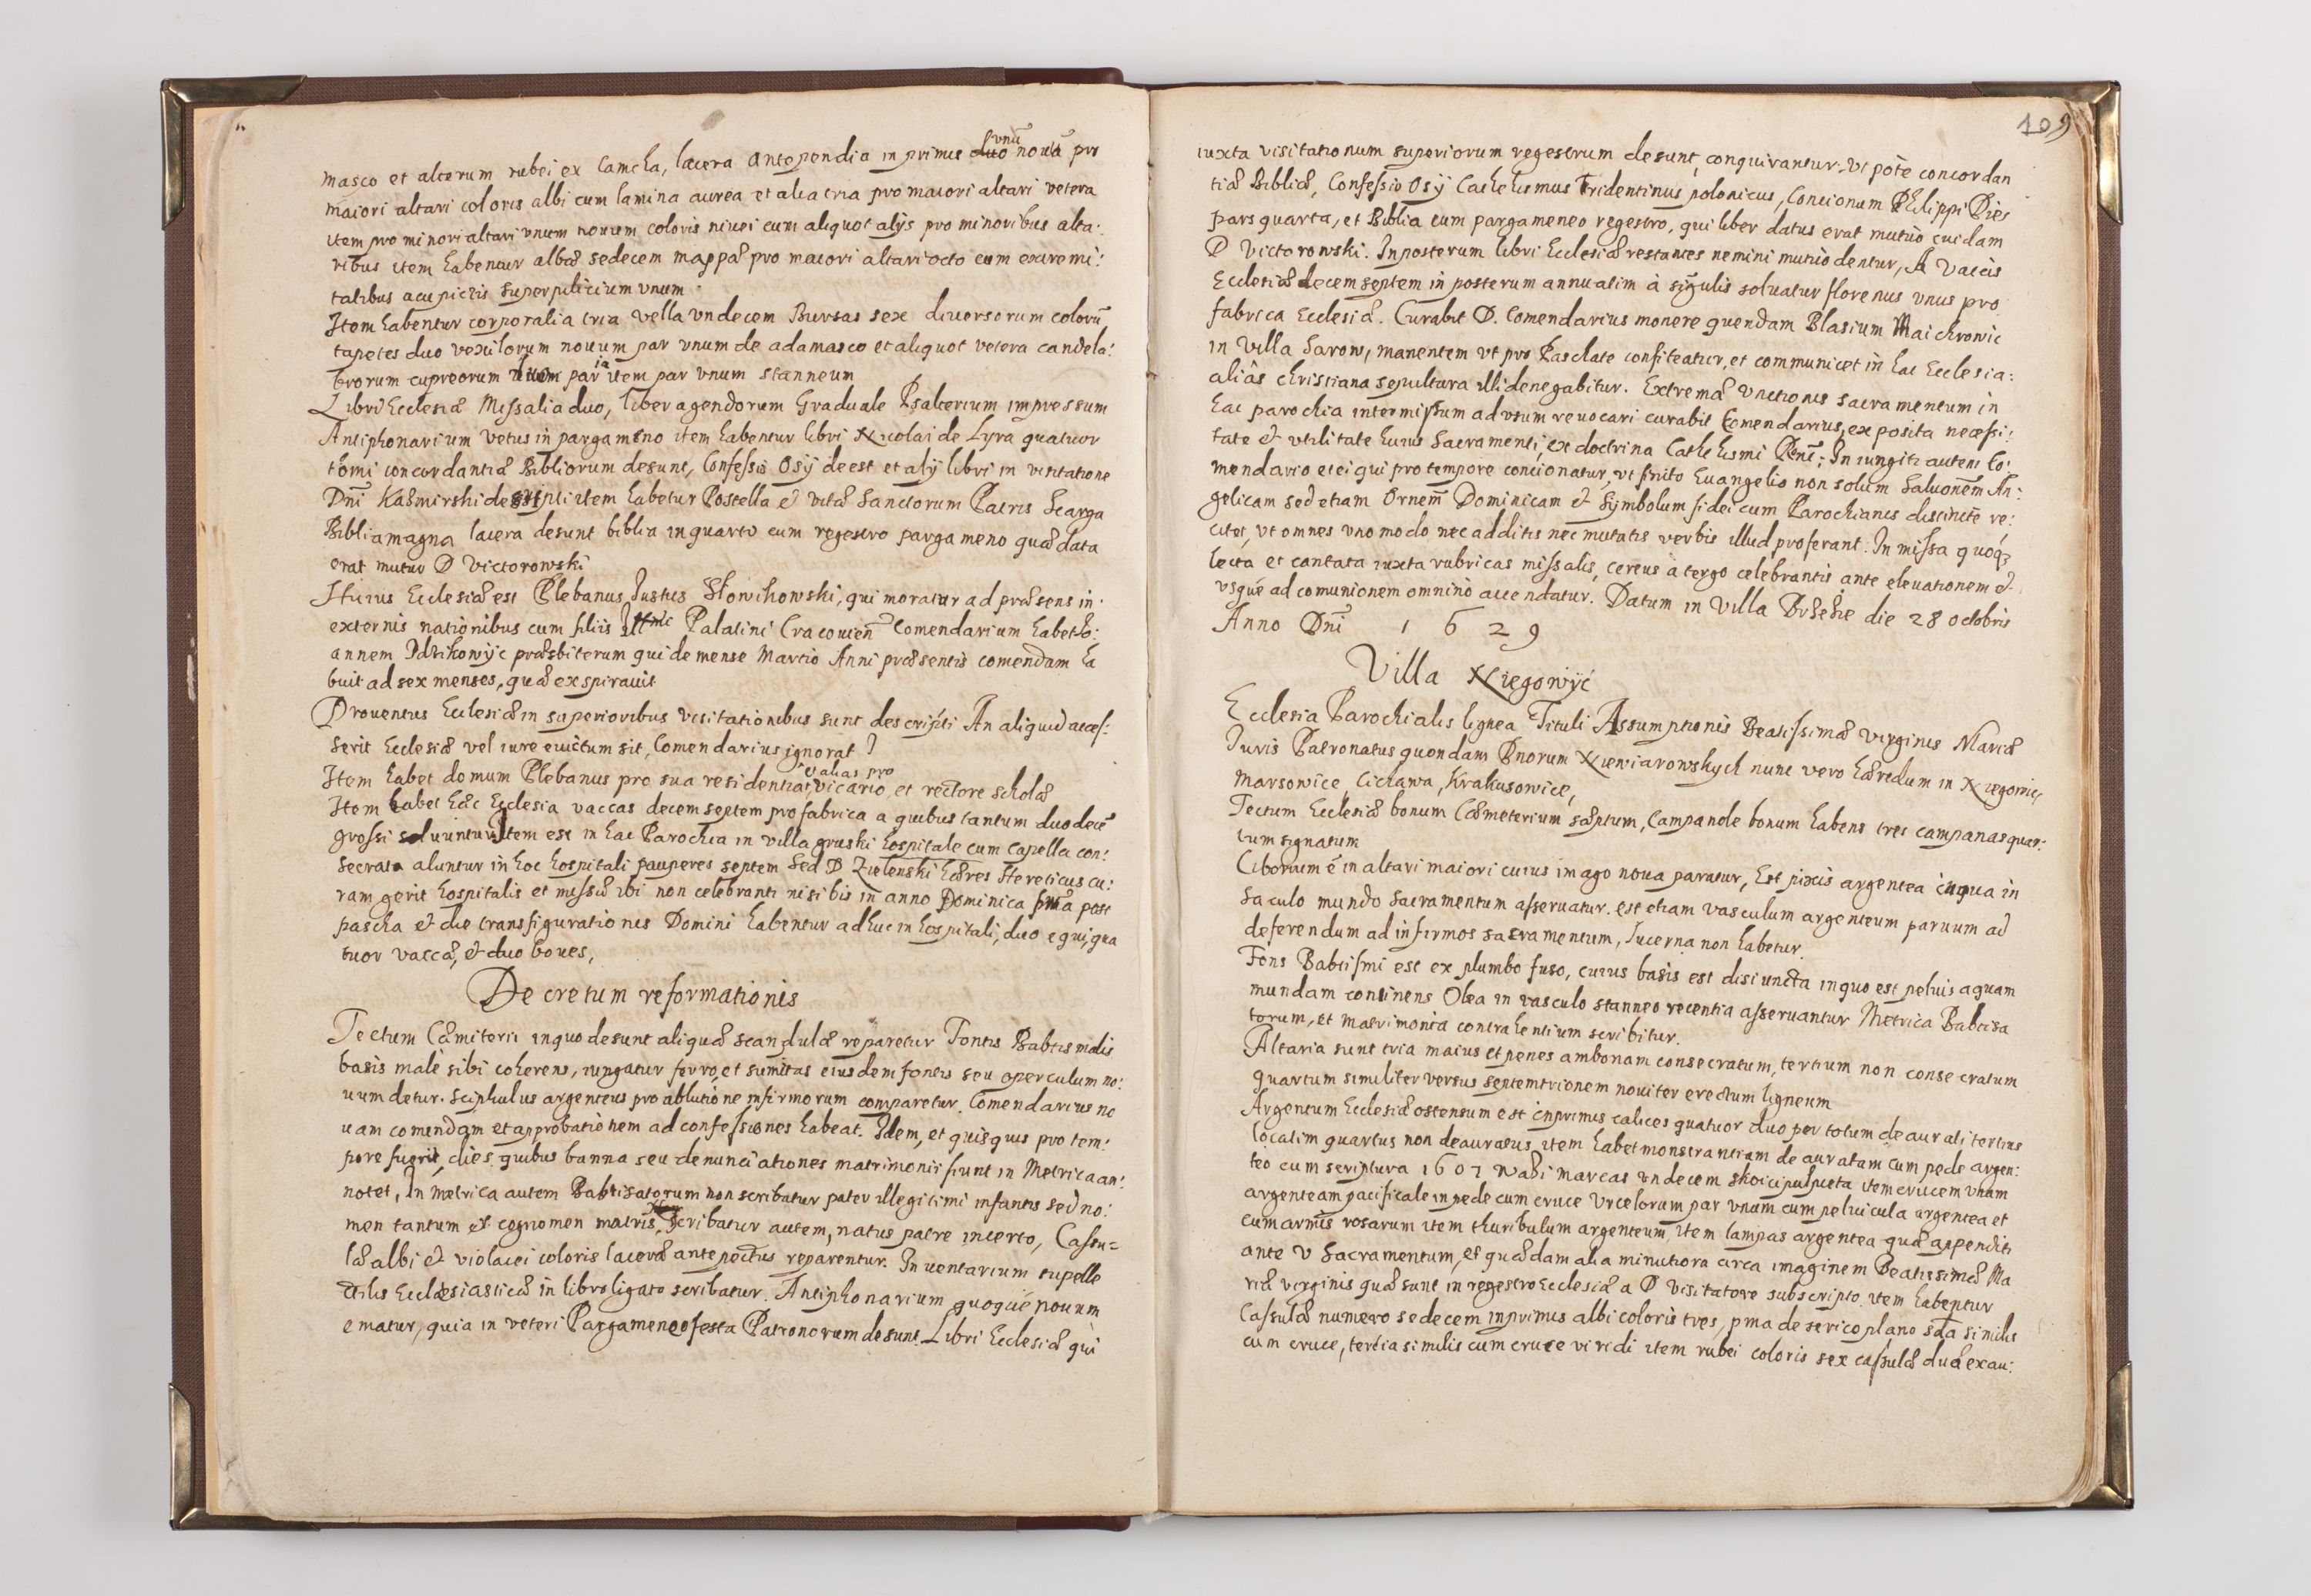 masco et alterum rubei ex Camcha, lacera antependia in primis duo unū noua pro
maiori altari coloris albi cum lamina aurea et alia tria pro maiori altari vetera
item pro minori altari vnum nouum coloris niuei cum aliquot alijs pro minoribus alta:
ribus item habentur albæ sedecem mappæ pro maiori altari octo cum extremi:
talibus acupictis superpilicium vnum.
Item habentur corporalia tria vella vndecem Bursas sex diuersorum colorū
tapetes duo vexilorum nouum par vnum de adamasco et aliquot vetera candela:
brorum cupreorum par ia item par vnum stanneum
Libri Ecclesiæ Missalia duo, liber agendorum Graduale Psalterium impressum
Antiphonarium vetus in pargameno item habentur libri Nicolai de Lyra quatuor
tomi concordantiæ Bibliorum desunt, Confessio Osij deest et alij libri in visitatione
Dñi Kaźmirski descripti item habetur Postella et vitæ Sanctorum Patris Scarga
Biblia magna lacera desunt biblia in quarto cum regestro pargameno quæ data
erat mutuo D Victorowski
Huius Ecclesiæ est Plebanus Justus Słowikowski, qui moratur ad præsens in
externis nationibus cum filiis Illmi Palatini Cracouien̄ Comendarium habet Jo:
annem Idzikowijc præsbiterum qui de mense Martio Anni præsentis comendam ha
buit ad sex menses, quæ exspirauit
Prouentus Ecclesiæ in superioribus visitationibus sunt descripti An aliquid acces:
serit Ecclesiæ vel iure euictum sit, Comendarius ignorat
Item habet domum Plebanus pro sua residentia, et alias pro vicario, et rectore scholæ
Item habet hæc Ecclesia vaccas decem septem pro fabrica a quibus tantum duodecē
grossi soluuntur Item est in hac Parochia in villa gruski hospitale cum Capella con:
secrata aluntur in hoc hospitali pauperes septem sed D Zielenski hæres Hereticus cu:
ram gerit hospitalis et missæ ibi non celebranti nisi bis in anno Dominica pma post
pascha et die transfigurationis Domini habentur adhuc in hospitali, duo equi, qua
tuor vaccæ, et duo boues,
Decretum reformationis
Tectum Cæmiterii in quo desunt aliquæ scandulæ reparetur Fontis Babtismalis
basis malè sibi coherens, iungatur ferro, et sumitas eiusdem fontis seu operculum no:
uum detur. Sciphulus argenteus pro ablutione infirmorum comparetur. Comendarius no
uam comendam et approbationem ad confessiones habeat. Idem, et quisquis pro tem:
pore fuerit, dies quibus banna seu denunciationes matrimonii fiunt in Metrica an:
notet, In metrica autem Babtisatorum non scribatur pater illegitimi infantis sed no:
men tantum et cognomen matris, scribatur autem, natus patre incerto, Casu=
læ albi et violacei coloris laceræ ante pectus reparentur. Inuentarium supelle
ctilis Ecclesiasticæ in libro ligato scribatur. Antiphonarium quoque nouum
ematur, quia in veteri Pargameneo festa Patronorum desunt. Libri Ecclesiæ qui
109
iuxta visitationum superiorum regestrum desunt, conquirantur. Vt pote concordan
tiæ Bibliæ, Confessio Osij Cathehismus Tridentinus polonicus, Concionum Philippi Dies
pars quarta, et Biblia cum pargameneo regestro, qui liber datus erat mutuò cuidam
D Victorowski. Inposterum libri Ecclesiæ restantes nemini mutuò dentur, A Vaccis
Ecclesiæ decem septem in posterum annuatim à singulis soluatur florenus vnus pro
fabrica Ecclesiæ. Curabit D. Comendarius monere quendam Blasium Maichrowic
in Villa Sarow, manentem vt pro Paschate confiteatur, et communicet in hac Ecclesia:
aliâs christiana sepultura illi denegabitur. Extremæ Vnctionis sacramentum in
hac parochia intermissum ad vsum reuocari curabit Comendarius, exposita necessi:
tate et vtilitate huius Sacramenti, ex doctrina Cathehismi Rñi: Iniungit autem Co:
mendario et ei qui pro tempore concionatur, vt finito Euangelio non solum Saluonēm An:
gelicam sed etiam Ornem̄ Dominicam et Symbolum fidei cum Parochianis distinctè re:
citet, vt omnes vno modo nec additis nec mutatis verbis illud proferant. In missa quoq3
lecta et cantata iuxta rubricas missalis, cereus à tergo celebrantis ante eleuationem et
vsque ad comunionem omninò accendatur. Datum in Villa Brzezie die 28 octobris
Anno Dñi 1629
Villa Niegowijć
Ecclesia Parochialis lignea Tituli Assumptionis Beatissimæ Virginis Mariæ
Iuris Patronatus quondam Dnorum Niewiarowskych nunc vero hæredum in Niegowic,
Marsowice, Cichawa, Krakusowice,
Tectum Ecclesiæ bonum Cæmeterium sæptum, Campanole bonum habens tres campanas quar:
tum signatum
Ciborium ē in altari maiori cuius imago noua paratur, Est pixis argentea in qua in
saculo mundo Sacramentum asseruatur. est etiam vasculum argenteum paruum ad
deferendum ad infirmos sacramentum, lucerna non habetur.
Fons Babtismi est ex plumbo fuso, cuius basis est disiuncta in quo est peluis aquam
mundam continens Olea in vasculo stanneo recentia asseruantur Metrica Babtisa
torum, et matrimonia contrahentium scribitur.
Altaria sunt tria maius et penes ambonam consecratum, tertium non consecratum
quartum similiter versus septemtrionem nouiter erectum ligneum
Argentum Ecclesiæ ostensum est inprimis calices quatuor duo per totum deaurati tertius
localim quartus non deauratus, item habet monstrantiam deauratam cum pede argen:
teo cum scriptura 1607 waźi marcas vndecem skoici pulpieta item crucem vnam
argenteam pacificale in pede cum cruce Vrcelorum par vnum cum peluicula argentea et
cum armis rosarum item thuribulum argenteum, item lampas argentea quæ appendit
ante V Sacramentum, et quædam alia minutiora circa imaginem Beatissimæ Ma
riæ virginis quæ sunt in regestro Ecclesiæ a D Visitatore subscripto. item habentur
Casulæ numero sedecem inprimis albi coloris tres, pma de serico plano sda similis
cum cruce, tertia similis cum cruce viridi item rubei coloris sex casulæ duæ ex au: